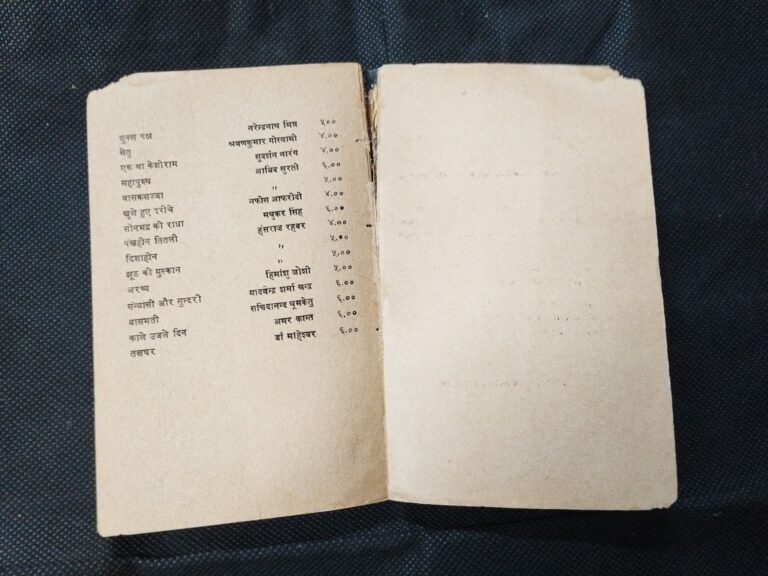 शुक्ल पक्ष नरेन्द्रनाथ मित्र ५.००
सेतु श्रवणकुमार गोस्वामी ४.००
एक था केशोराम सुदर्शन नारंग ४.००
महापुरुष आबिद सुरती ६.००
वासकसज्जा ,, ५.००
खुले हुए दरीचे नफीस आफरीदी ४.००
सोनभद्र की राधा मधुकर सिंह ६.००
पंखहीन तितली हंसराज रहबर ४.००
दिशाहीन ,, ५.००
झूठ की मुस्कान ,, ५.००
अरण्य हिमांशु जोशी ५.००
संन्यासी और सुन्दरी यादवेन्द्र शर्मा चन्द्र ६.००
बासमती सचिदानन्द धूमकेतु ६.००
काले उजले दिन अमर कान्त ६.००
तलघर डॉ माहेश्वर ६.००